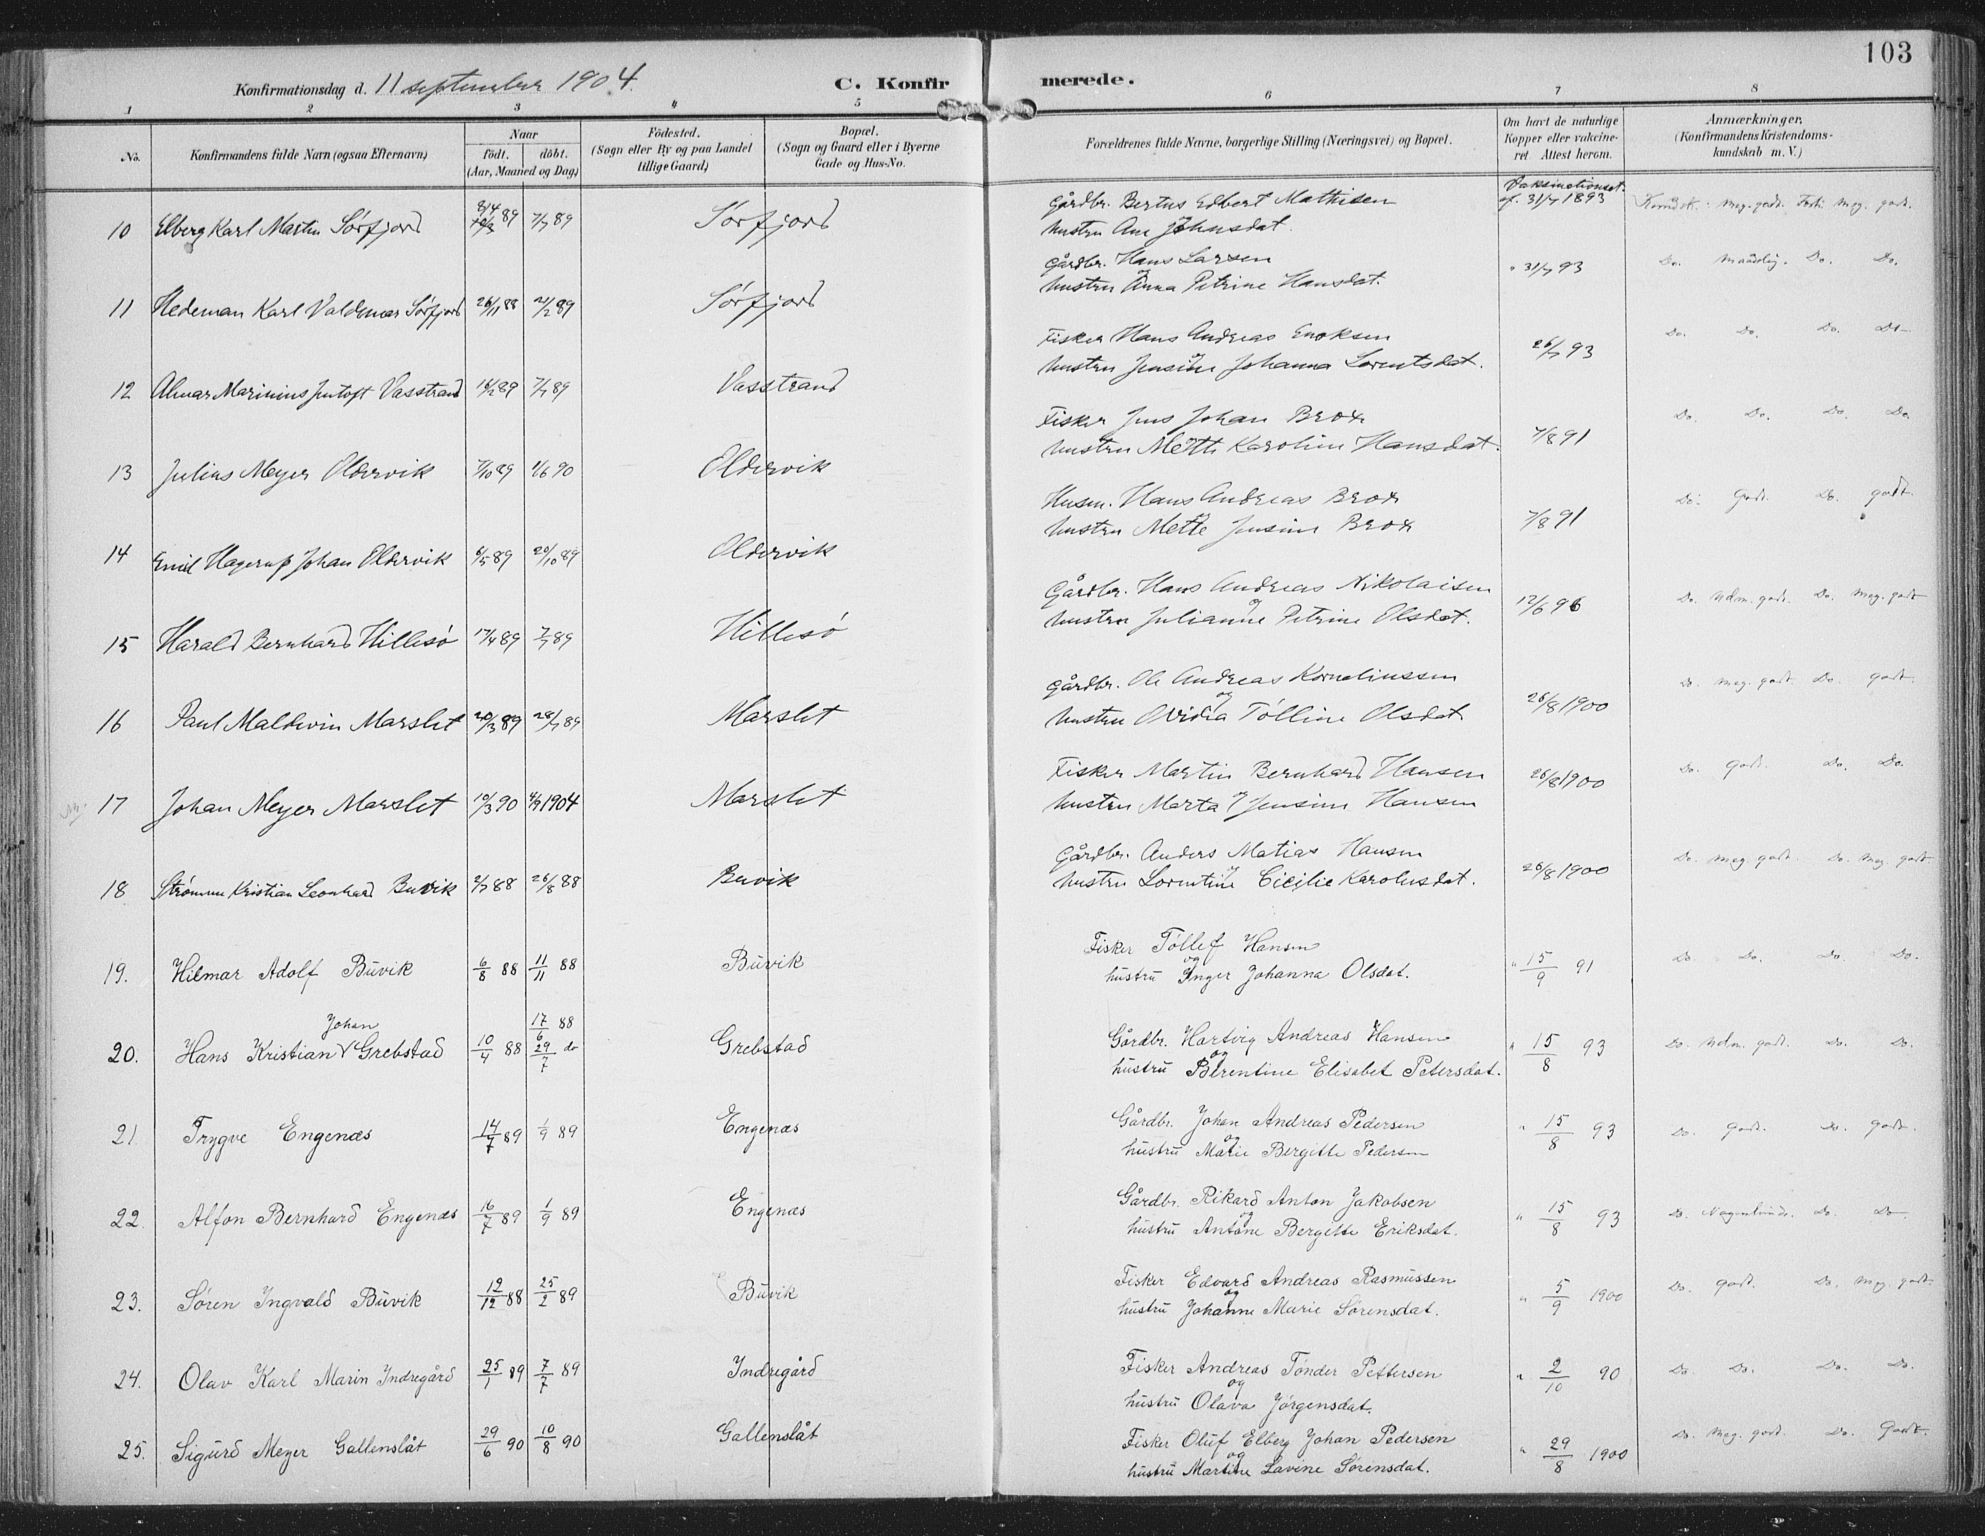 103
Konfirmationsdag d. 11 september 1904.
C. Konfirmerede.
1 2 3 4 5 6 7 8
No.
Konfirmandens fulde Navn (ogsaa Efternavn)
Naar
födt. döbt.
(Aar, Maaned og Dag)
Födested.
(Sogn eller By og paa Landet
tillige Gaard)
Bopæl.
(Sogn og Gaard eller i Byerne
Gade og Hus-No.
Forældrenes fulde Navne, borgerlige Stilling (Næringsvei) og Bopæl.
Om havt de naturlige
Kopper eller vakcine-
ret Attest herom.
Anmærkninger,
(Konfirmandens Kristendoms-
kundskab m. V.)
10 Elberg Karl Martin Sörfjord 89 7/7 89 Sörfjord Gårdbr. Bertus Edbert Mathisen Vaksinationsat. af. 31/7 1893 meg. godt. meg. godt.
hustru Ane Johnsdat.
11 Hedeman Karl Valdemar Sörfjord 26/11 88 2/2 89 Sörfjord Gårdbr. Hans Larsen " 31/7 93 Do. Do. Do.
og
hustru Anna Petrine Hansdat.
12 Almar Marinius Jentoft Vasstrand 16/2 89 7/7 89 Vasstrand Fisker Hans Andreas Enoksen 26/7 93 Do. Do. Do. Do
og
hustru Jensine Johanna Lorentsdat.
13 Julius Meyer Oldervik 7/10 89 1/6 90 Oldervik Fisker Jens Johan Brox 7/8 91 Do. Do. Do. Do.
og
hustru Mette Karoline Hansdat.
14 Emil Hagerup Johan Oldervik 6/5 89 20/10 89 Oldervik Husm. Hans Andreas Brox 7/8 91 Do. Godt. Do. godt.
og
hustru Mette Jensine Brox
15 Harald Bernhard Hillesö 17/4 89 7/7 89 Hillesö Gårdbr. Hans Andreas Nikolaisen 12/6 96 Do. Udm. godt. Do. meg. godt
og
hustru Julianne Petrine Olsdat.
16 Paul Maldevin Marslet 20/3 89 28/7 89 Marslet Gårdbr. Ole Andreas Korneliussen 26/8 1900 Do. meg. godt. Do. godt.
og
hustru Ovidia Tölline Olsdat
17 Johan Meyer Marslet 10/3 90 4/9 1904 Marslet Fisker Martin Bernhard Hansen 26/8 1900 Do. godt. Do. Do.
og
hustru Marta Jensine Hansen
18 Strömme Kristian Leonhard Buvik 2/7 88 26/8 88 Buvik Gårdbr. Anders Matias Hansen 26/8 1900 Do. meg. godt. Do. meg. godt
og
hustru Lorentine Cicilie Karolusdat.
19. Hilmar Adolf Buvik 6/8 88 11/11 88 Buvik Fisker Töllef Hansen " 15/9 91 Do. Do. Do. Do.
og
hustru Inger Johanna Olsdat.
Johan 17/6 88
20. Hans Kristian V Grebstad 10/4 88 29/7 do Grebstad Gårdbr. Hartvig Andreas Hansen " 15/8 93 Do. Udm. godt. Do. Do.
og
hustru Berentine Elisabet Petersdat.
21. Trygve Engenæs 14/7 89 1/9 89 Engenæs Gårdbr. Johan Andreas Pedersen " 15/8 93 Do. godt. Do. godt.
og
hustru Marie Bergitte Pedersen
22. Alfon Bernhard Engenæs 16/7 89 1/9 89 Engenæs Gårdbr. Rikard Anton Jakobsen " 15/8 93 Do. Do. Do
og
hustru Antone Bergitte Eriksdat.
23. Sören Ingvald Buvik 12/12 88 25/2 89 Buvik Fisker Edvard Andreas Rasmussen " 5/9 1900 Do. godt. Do. Meg. godt.
og
hustru Johanne Marie Sörensdat.
24. Olav Karl Marin Indregård 25/1 89 7/7 89 Indregård Fisker Andreas Tönder Pettersen " 2/10 90 Do. Do. Do. Do.
og
hustru Olava Jörgensdat.
25. Sigurd Meyer Gallenslåt 29/6 90 10/8 90 Gallenslåt Fisker Oluf Elberg Johan Pedersen " 29/8 1900 Do. Meg. godt. Do. Godt.
og
hustru Martine Lavine Sörensdat.